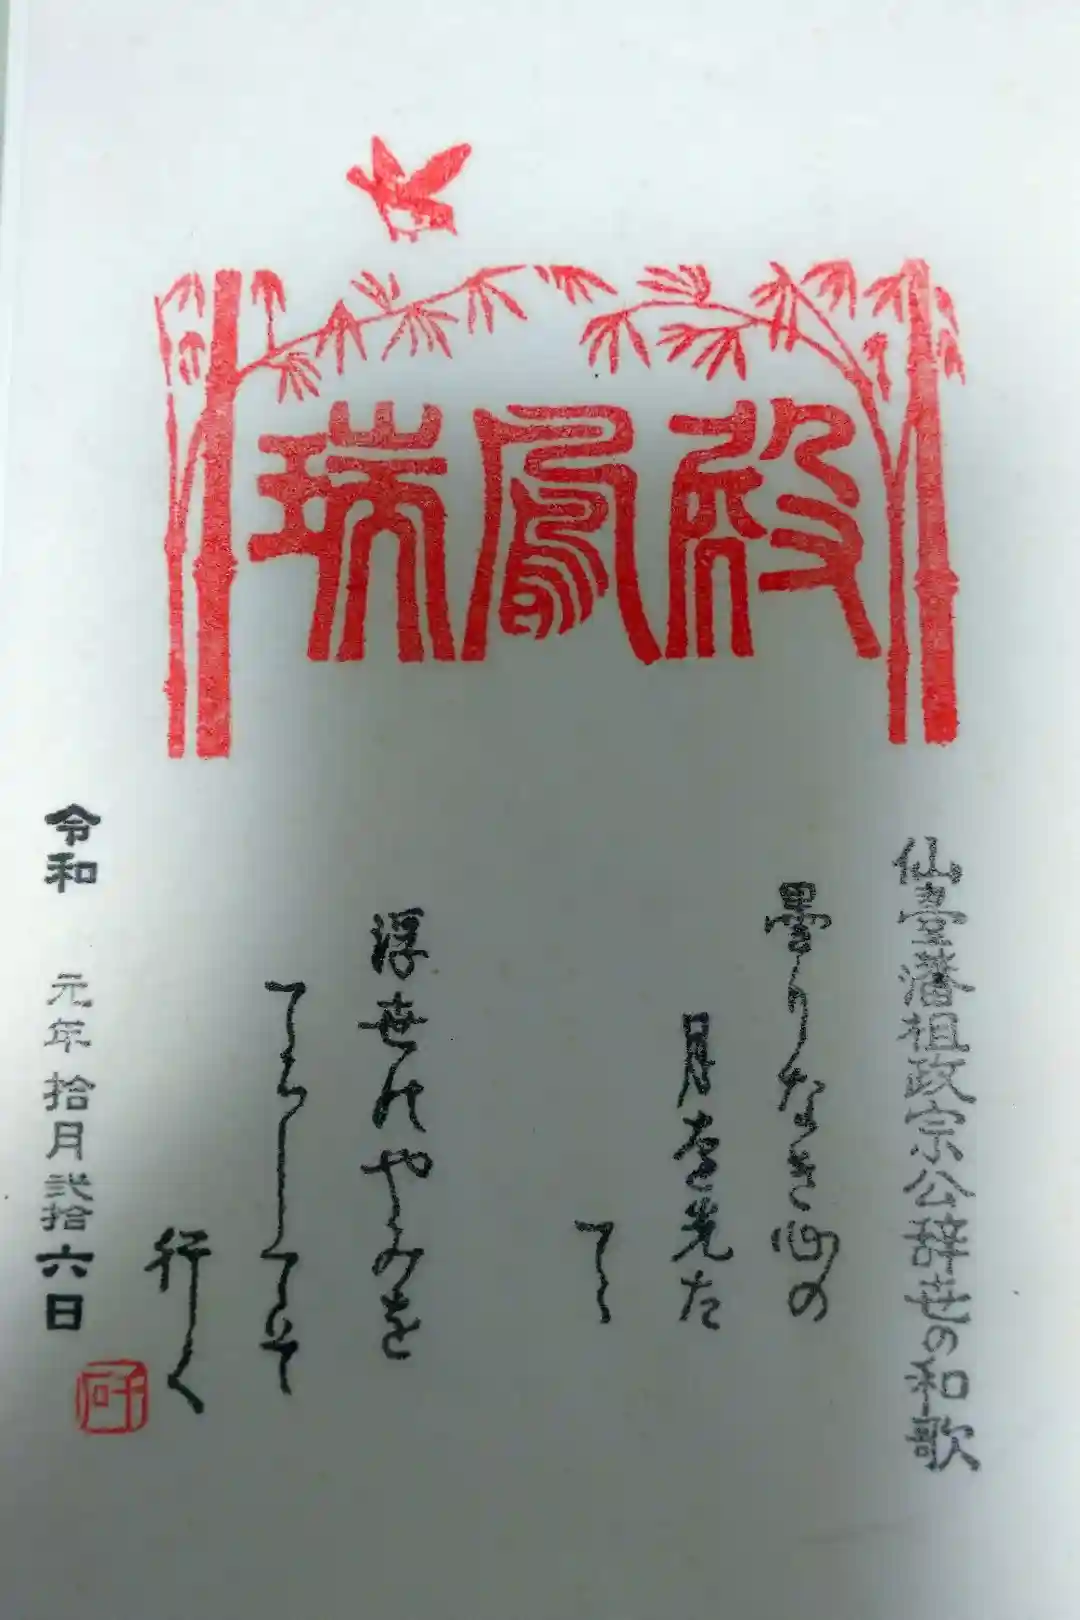 瑞鳳殿
仙臺藩祖政宗公辞世の和歌
曇りなき心の
月を先た
てゝ
浮世のやみを
てらしてそ
行く
令和 元年 拾月 弐拾六日